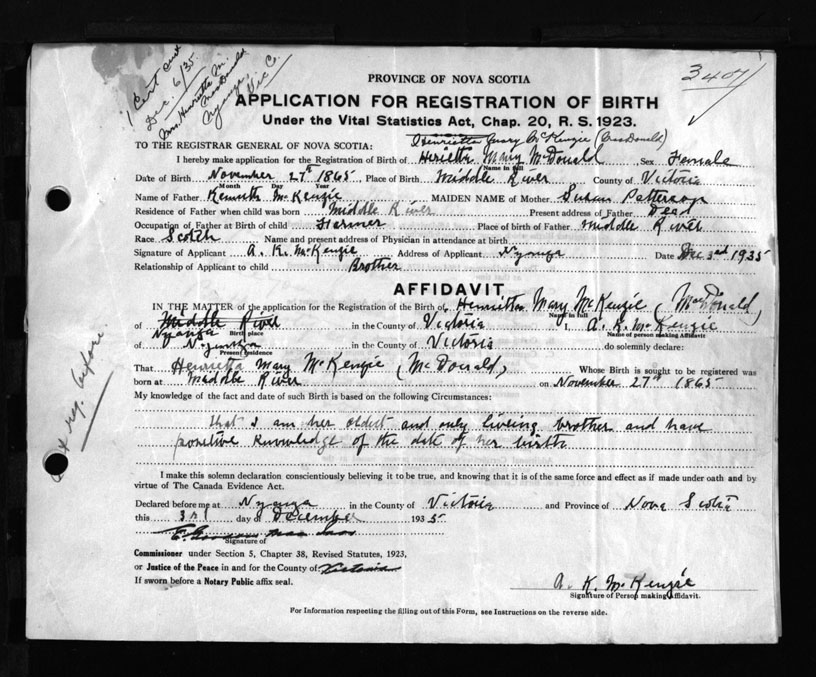 1 Cert sent
Dec. 6/35
Mrs. Henrietta M.
MacDonald
Nyanza,
Vic Co.
3407
PROVINCE OF NOVA SCOTIA
APPLICATION FOR REGISTRATION OF BIRTH
Under the Vital Statistics Act, Chap. 20, R. S. 1923.
Henrietta Mary McKenzie (MacDonald)
TO THE REGISTRAR GENERAL OF NOVA SCOTIA:
I hereby make application for the Registration of Birth of Henrietta Mary McDonald Sex Female
Name in full
Date of Birth November 27th 1865 Place of Birth Middle River County of Victoria
Month Day Year
Name of Father Kenneth McKenzie MAIDEN NAME of Mother Susan Patterson
Residence of Father when child was born Middle River Present address of Father Dead
Occupation of Father at Birth of child Farmer Place of birth of Father Middle River
Race Scotch Name and present address of Physician in attendance at birth
Signature of Applicant A. K. McKenzie Address of Applicant Nyanza Date Dec 3rd 1935
Relationship of Applicant to child Brother
AFFIDAVIT
IN THE MATTER of the application for the Registration of the Birth of Henrietta Mary McKenzie (MacDonald)
Name in full
of Middle River in the County of Victoria I, A. K. McKenzie
Nyanza Birth place Name of person making Affidavit
of Nyanza in the County of Victoria do solemnly declare:
Present residence
That Henrietta Mary McKenzie (McDonald) Whose Birth is sought to be registered was
born at Middle River on November 27th 1865
My knowledge of the fact and date of such Birth is based on the following Circumstances:
that I am her oldest and only liveing brother and have
positive knowledge of the date of her birth
I make this solemn declaration conscientiously believing it to be true, and knowing that it is of the same force and effect as if made under oath and by
virtue of The Canada Evidence Act.
Declared before me at Nyanza in the County of Victoria and Province of Nova Scotia
this 3rd day of December 1935
Signature of
Commissioner under Section 5, Chapter 38, Revised Statutes, 1923,
or Justice of the Peace in and for the County of Victoria
If sworn before a Notary Public affix seal.
A. K. McKenzie
Signature of Person making Affidavit.
For Information respecting the filling out of this Form, see Instructions on the reverse side.
reg. before